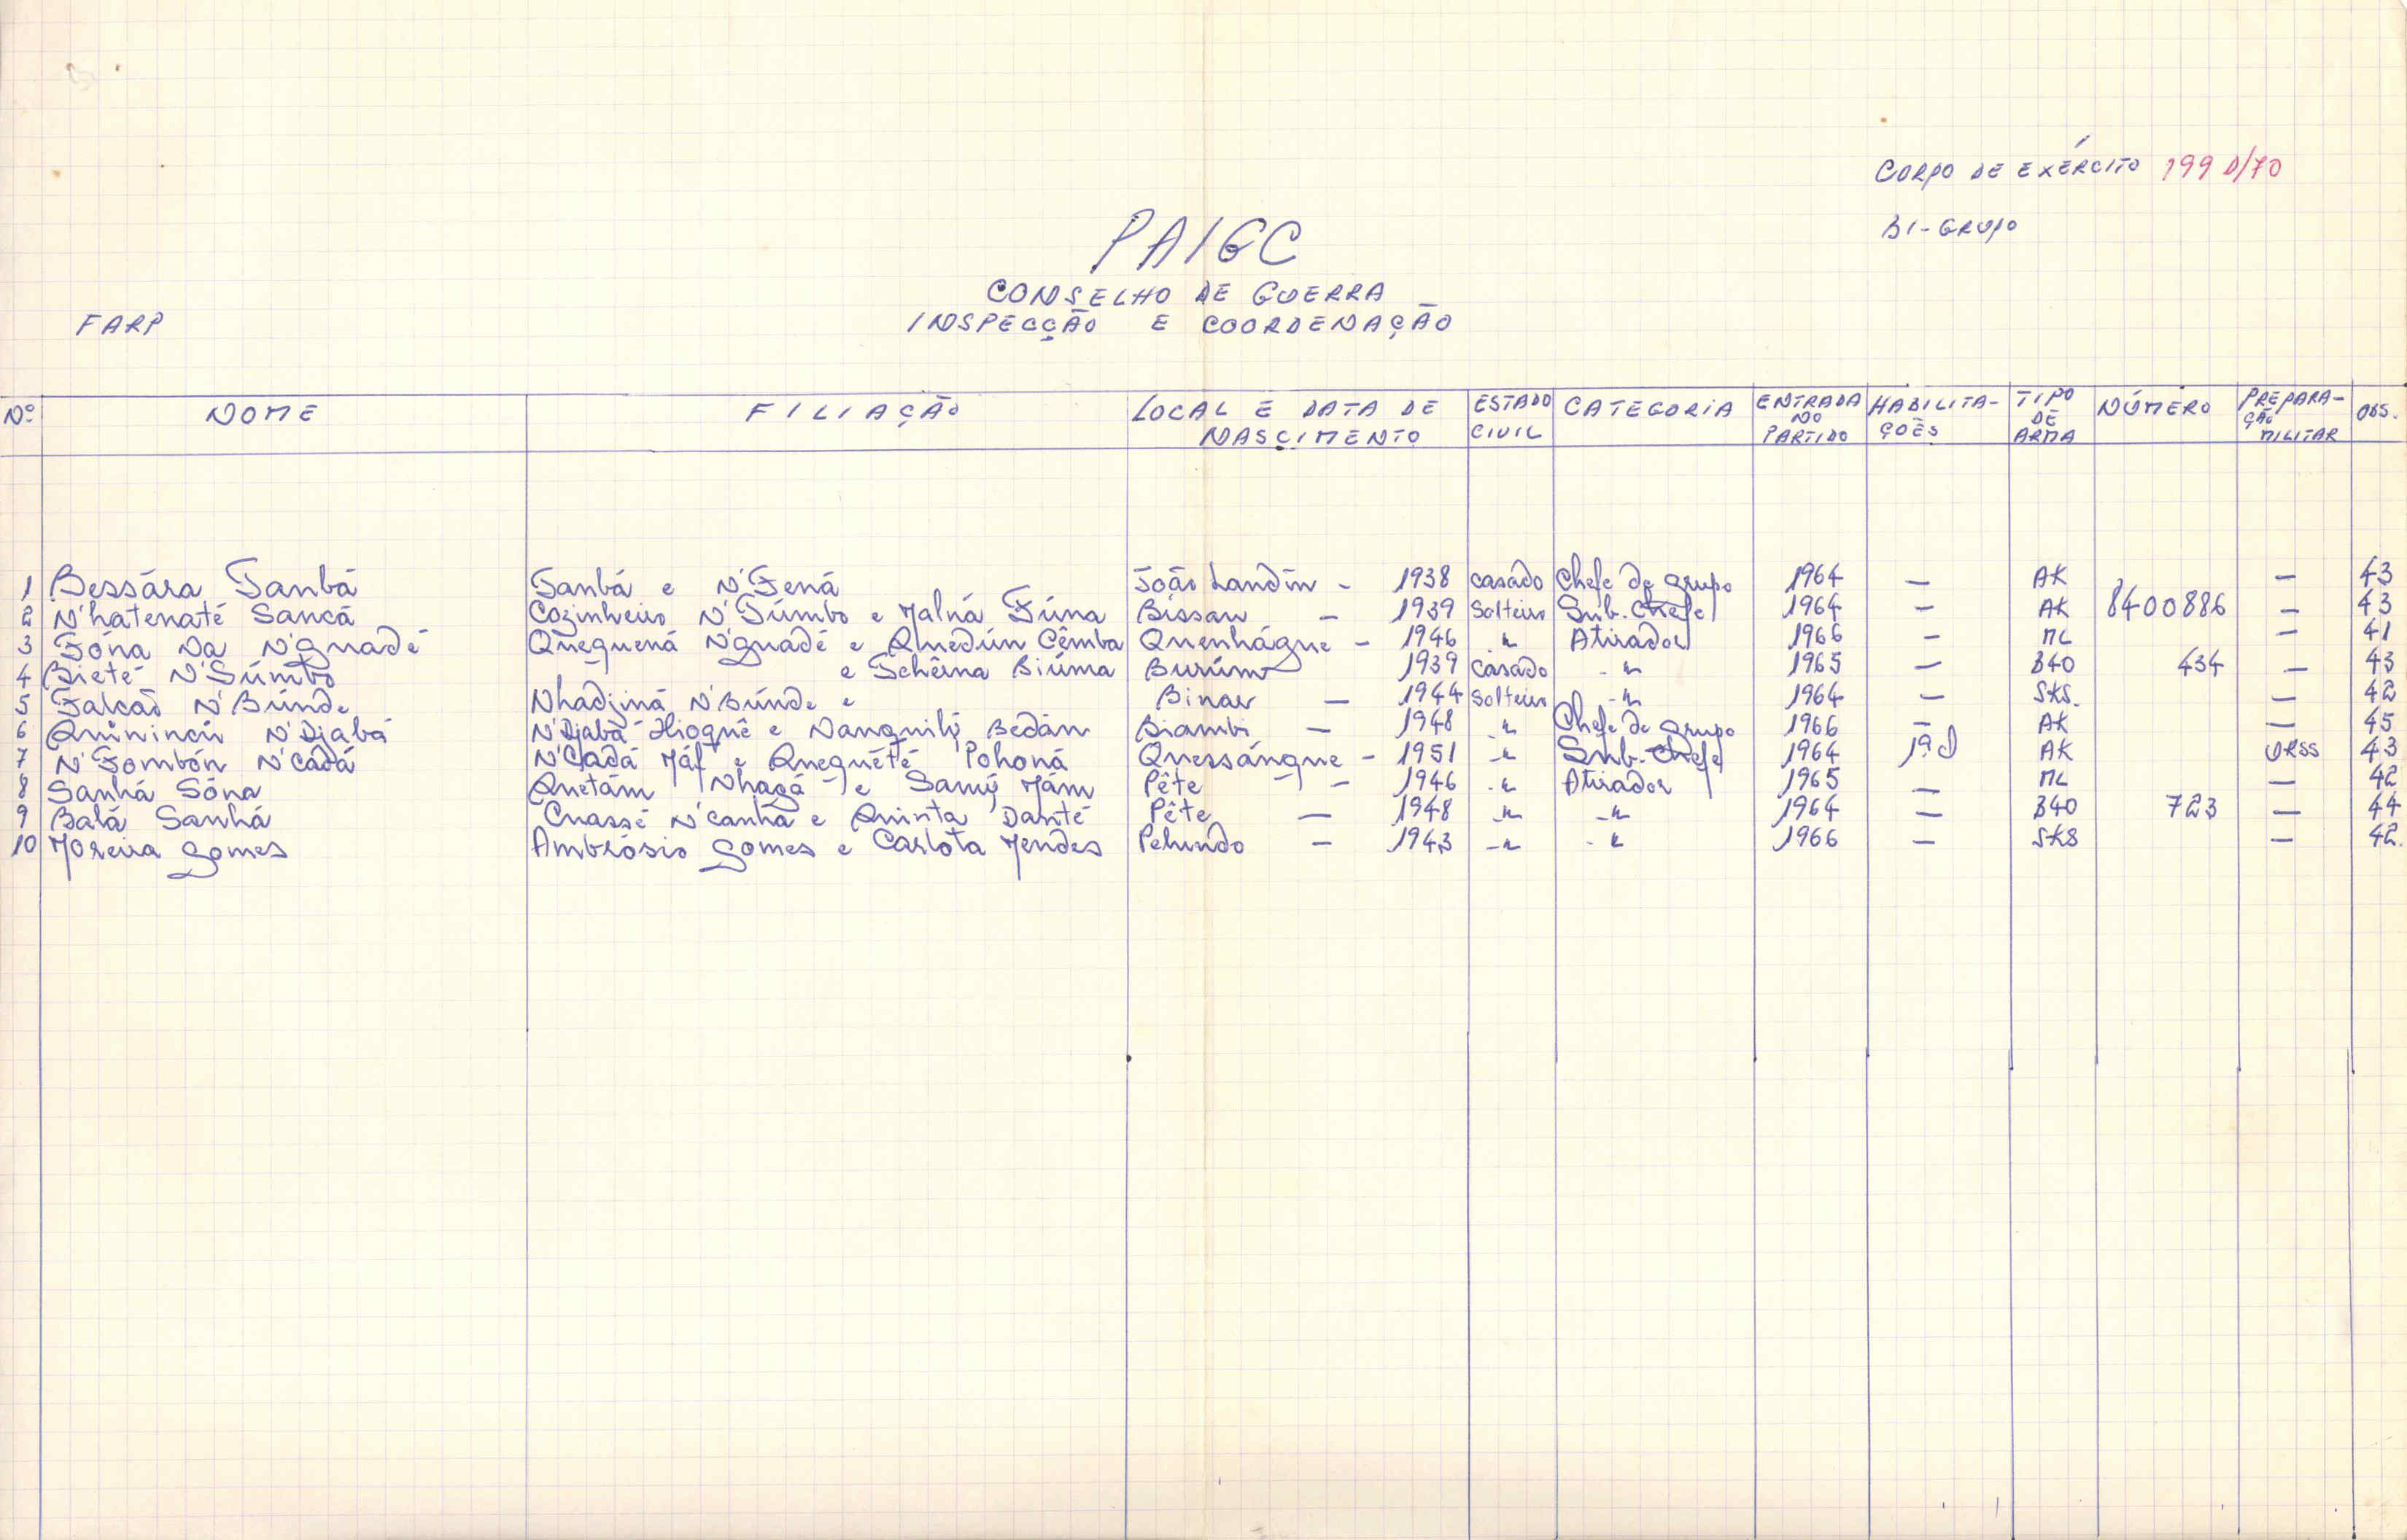 CORPO DE EXÉRCITO 199 D/70
BI-GRUPO
PAIGC
CONSELHO DE GUERRA
INSPECÇÃO E COORDENAÇÃO
FARP
Nº NOME FILIAÇÃO LOCAL E DATA DE NASCIMENTO ESTADO CIVIL CATEGORIA ENTRADA NO PARTIDO HABILITA-ÇOẼS TIPO DE ARMA NÚMERO PREPARA-ÇÃO MILITAR OBS.
1 Bessára Tanbá Tanbá e N'Fená João Landin - 1938 casado Chefe de grupo 1964 — AK — 43
2 N'hatenaté Sancá Cozinheiro N'Túmbo e Malná Fúna Bissau - 1939 Solteiro Sub-Chefe 1964 — AK 8400886 — 43
3 Fóna Na N'guadé Quequená N'guadé e Quedún Cêmba Quenhágue - 1946 -"- Atirador 1966 — ML — 41
4 Bieté N'Súmbo e Tchêrna Biúma Burúm 1939 casado -"- 1965 — B40 434 — 43
5 Falcão N'Búnde Nhadjiná N'Búnde e Binar — 1944 Solteiro -"- 1964 — SKS. — 42
6 Quinincú N'Djabá N'Djabá Hioquê e Nanquilý Bedán Biambi — 1948 -"- Chefe de grupo 1966 — AK — 45
7 N'Fombón N'Cadá N'Cadá Máf e Quequété Pohoná Quessángue - 1951 -"- Sub-Chefe 1964 1ª cl AK URSS 43
8 Sanhá Sóna Quetám Nhagá e Samý Mám Pête - 1946 -"- Atirador 1965 — ML — 42
9 Balá Sanhá Cuassé N'canhá e Quinta Danté Pête — 1948 -"- -"- 1964 — B40 723 — 44
10 Moreira Gomes Ambrósio Gomes e Carlota Mendes Pelundo — 1943 -"- -"- 1966 — SKS — 42.